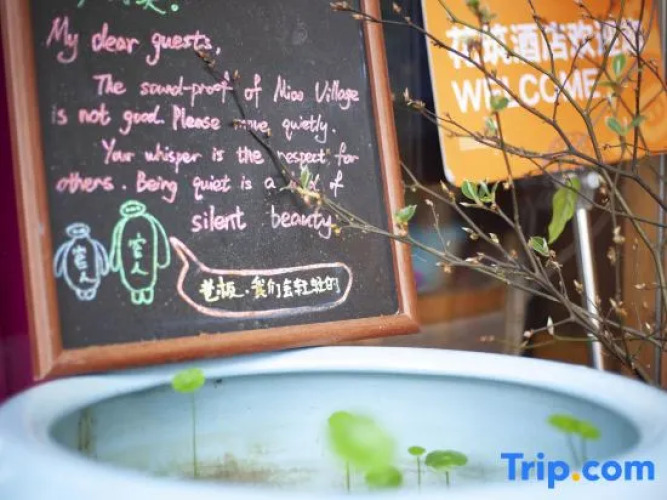 My dear guests,
The sound-proof of Miao Village
is not good. Please move quietly.
Your whisper is the respect for
others. Being quiet is a kind of
silent beauty
客人
客人
老板，我们会轻轻的
花筑酒店欢迎您
WELCOME
Trip.com